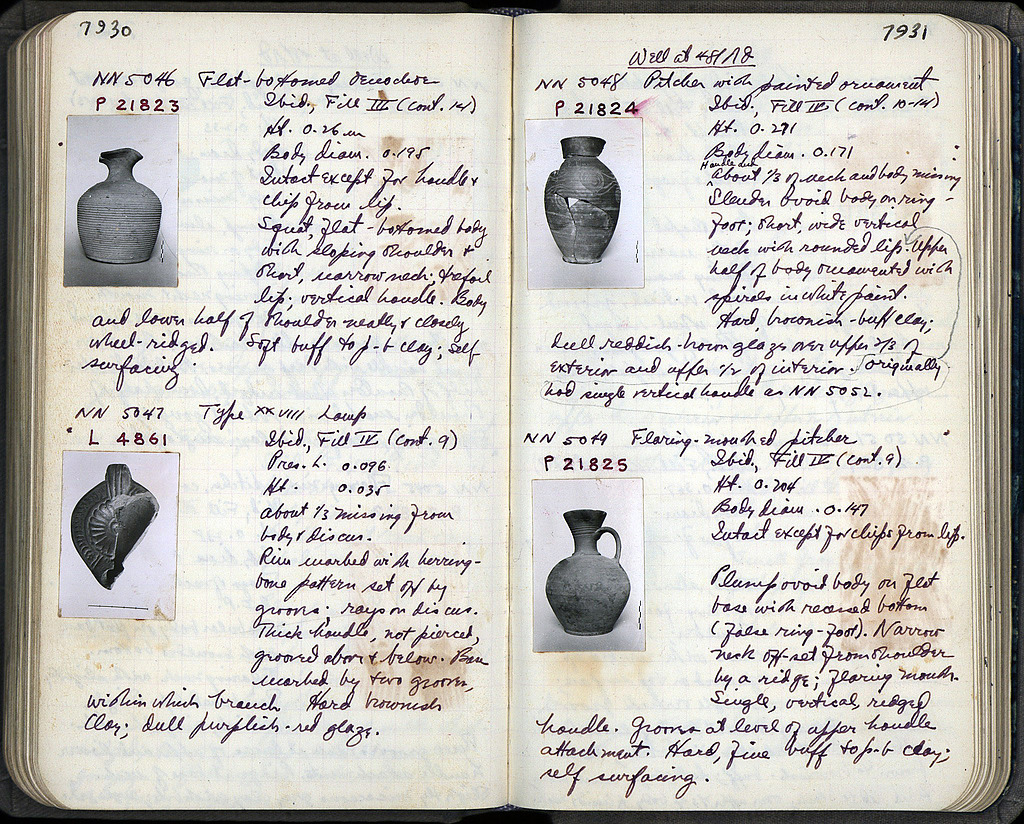 7930
NN 5046 Flat-bottomed oenochoe
P 21823 Ibid., Fill IV (cont. 14)
Ht. 0.26 m
Body diam. 0.195
Intact except for handle &
chip from lip.
Squat, flat-bottomed body
with sloping shoulder &
short, narrow neck; trefoil
lip; vertical handle. Body
and lower half of shoulder neatly & closely
wheel-ridged. Soft buff to p-b clay; self
surfacing.
NN 5047 Type XXVIII Lamp
L 4861 Ibid., Fill IV (cont. 9)
Pres. L. 0.096
Ht. 0.035
About 1/3 missing from
body & discus.
Rim marked with herring-
bone pattern set off by
grooves; rays on discus.
Thick handle, not pierced,
grooved above & below. Base
marked by two grooves,
within which branch. Hard brownish
clay; dull purplish-red glaze.
7931
Well at
NN 5048 Pitcher with painted ornament
P 21824 Ibid., Fill IV (cont. 10-14)
Ht. 0.271
Body diam. 0.171
Handle and
About 1/3 of neck and body missing
Slender ovoid body on ring-
foot; short, wide vertical
neck with rounded lip. Upper
half of body ornamented with
spirals in white paint.
Hard, brownish-buff clay;
dull reddish-brown glaze over upper 2/3 of
exterior and upper 1/2 of interior. Originally
had single vertical handle as NN 5052.
NN 5049 Flaring-mouthed pitcher
P 21825 Ibid., Fill IV (cont. 9)
Ht. 0.204
Body diam. 0.147
Intact except for chips from lip.
Plump ovoid body on flat
base with recessed bottom
(false ring-foot). Narrow
neck off-set from shoulder
by a ridge; flaring mouth.
Single, vertical, ridged
handle. Groove at level of upper handle
attachment. Hard, fine buff to p-b clay;
self surfacing.